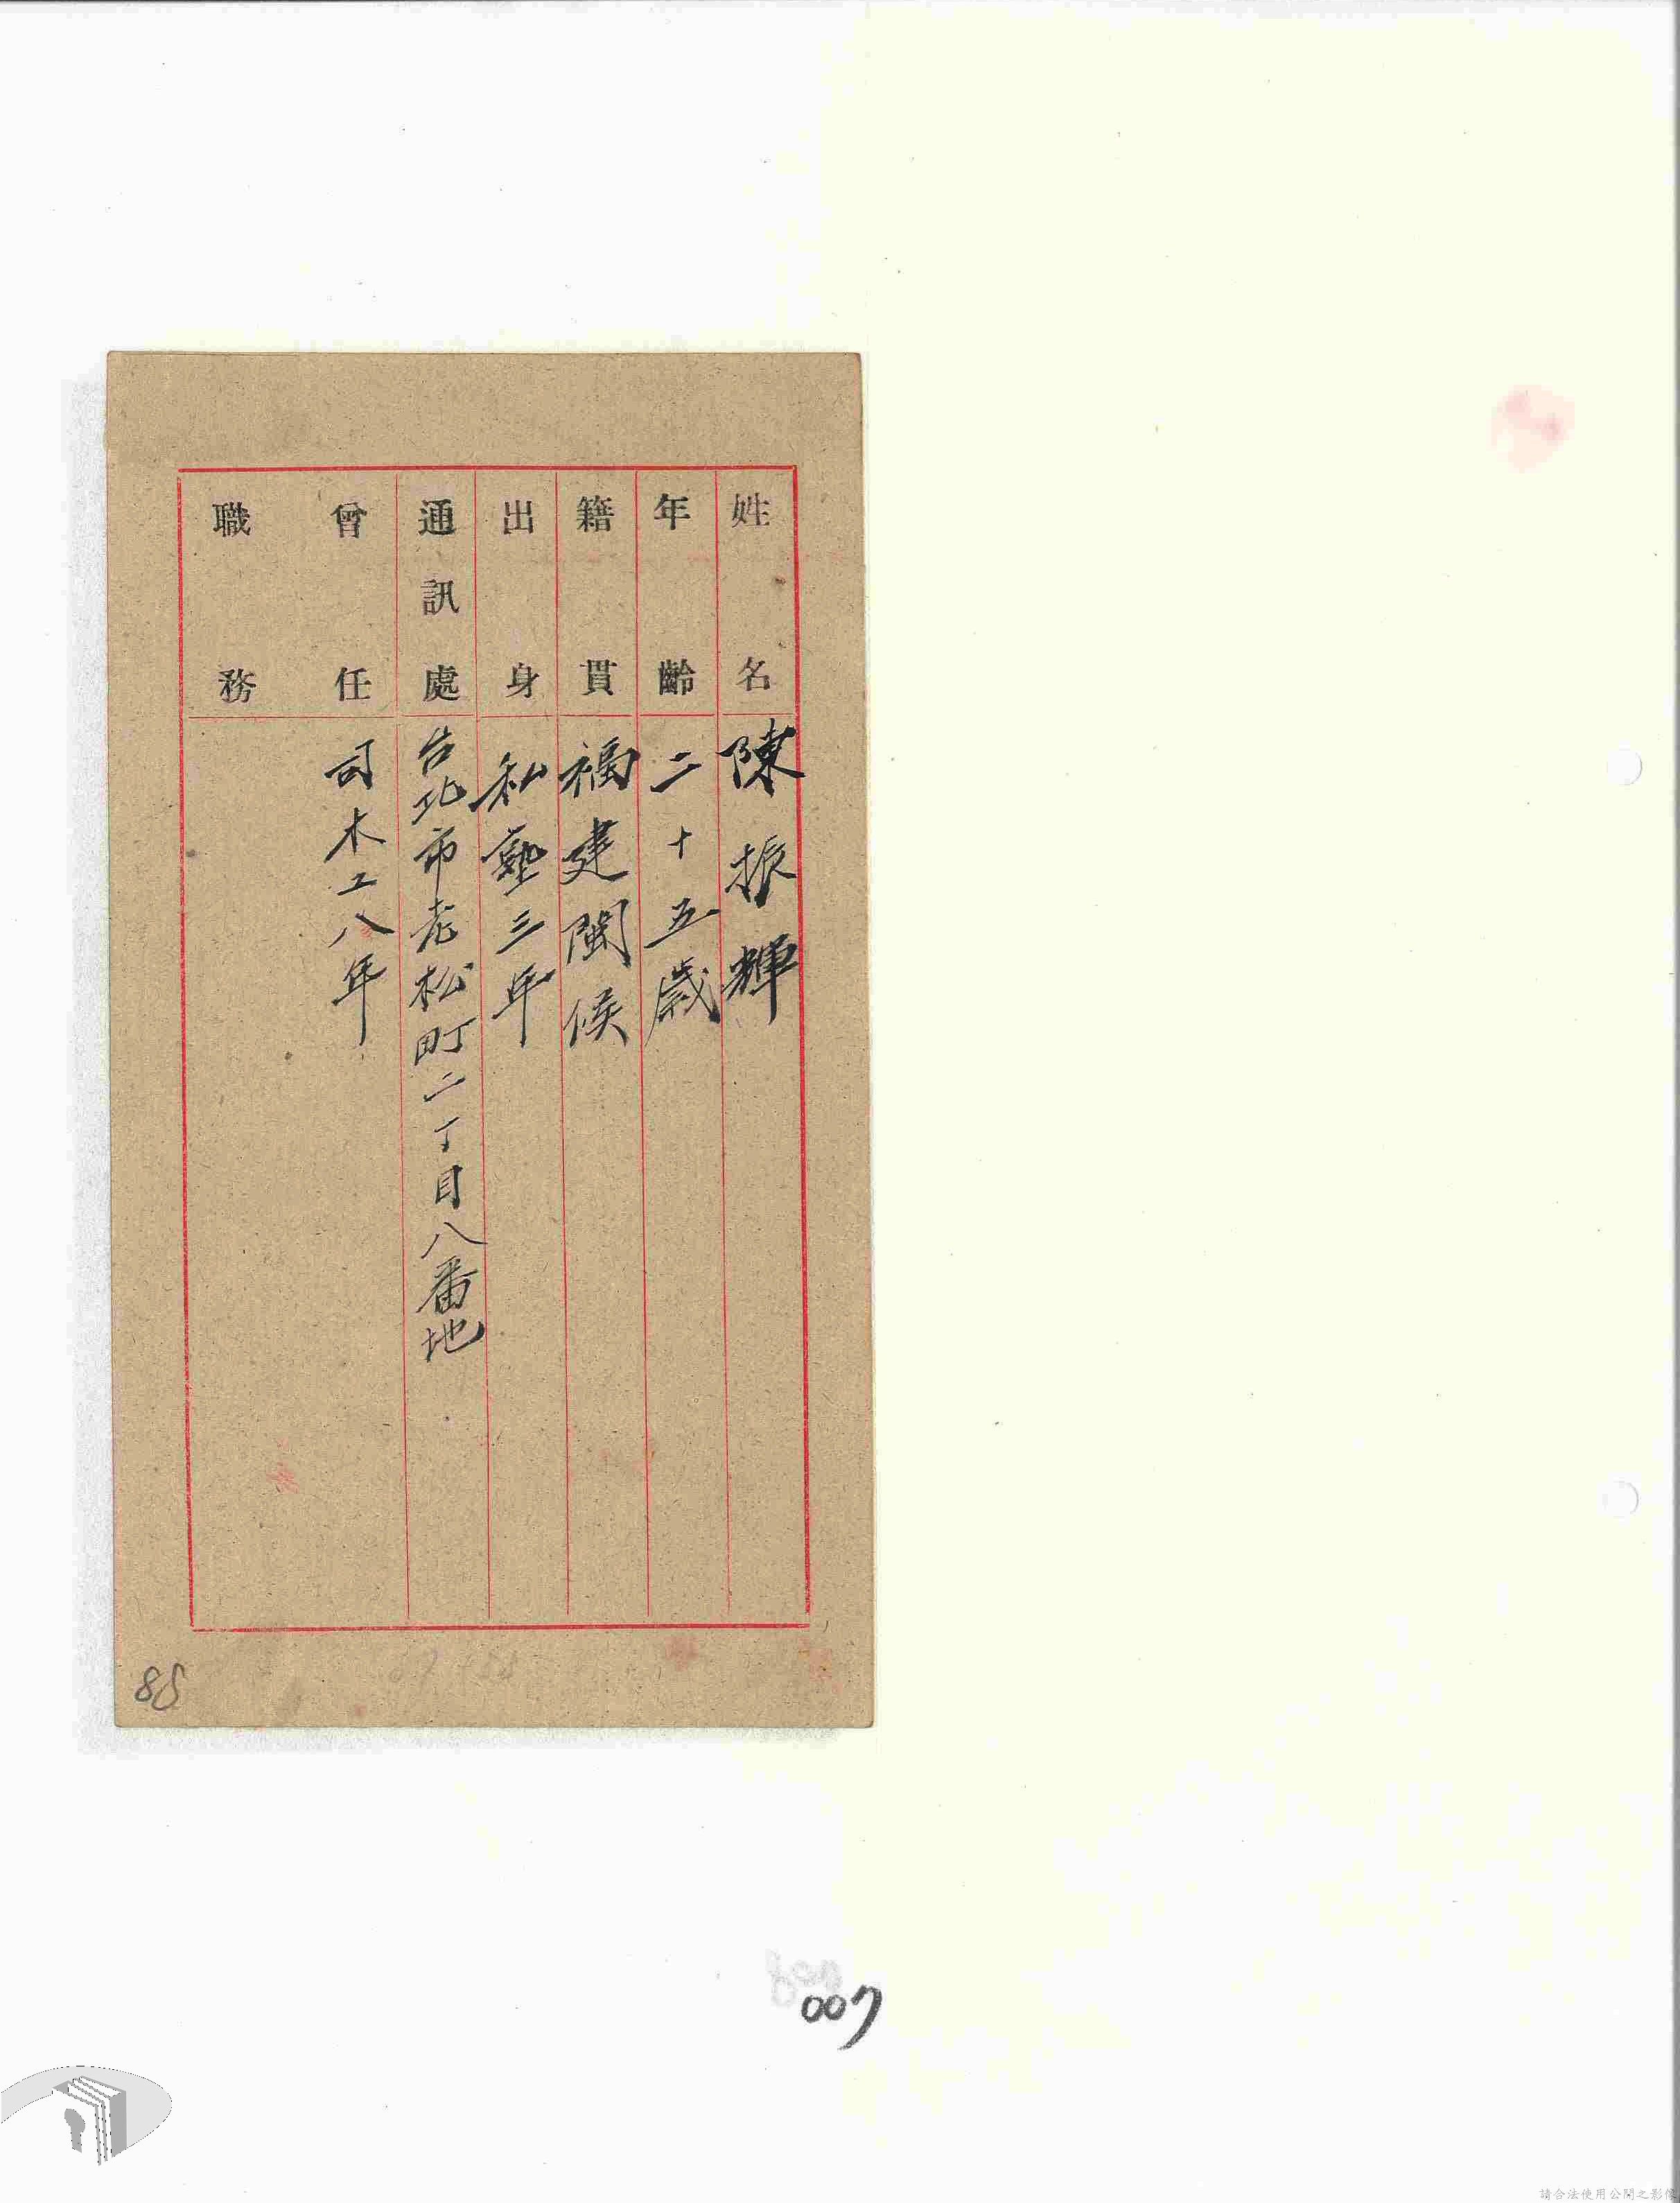 姓名 陳振輝
年齡 二十五歲
籍貫 福建閩侯
出身 私塾三年
通訊處 台北市老松町二丁目八番地
曾任職務 司木工八年
85
007
請合法使用公開之影像